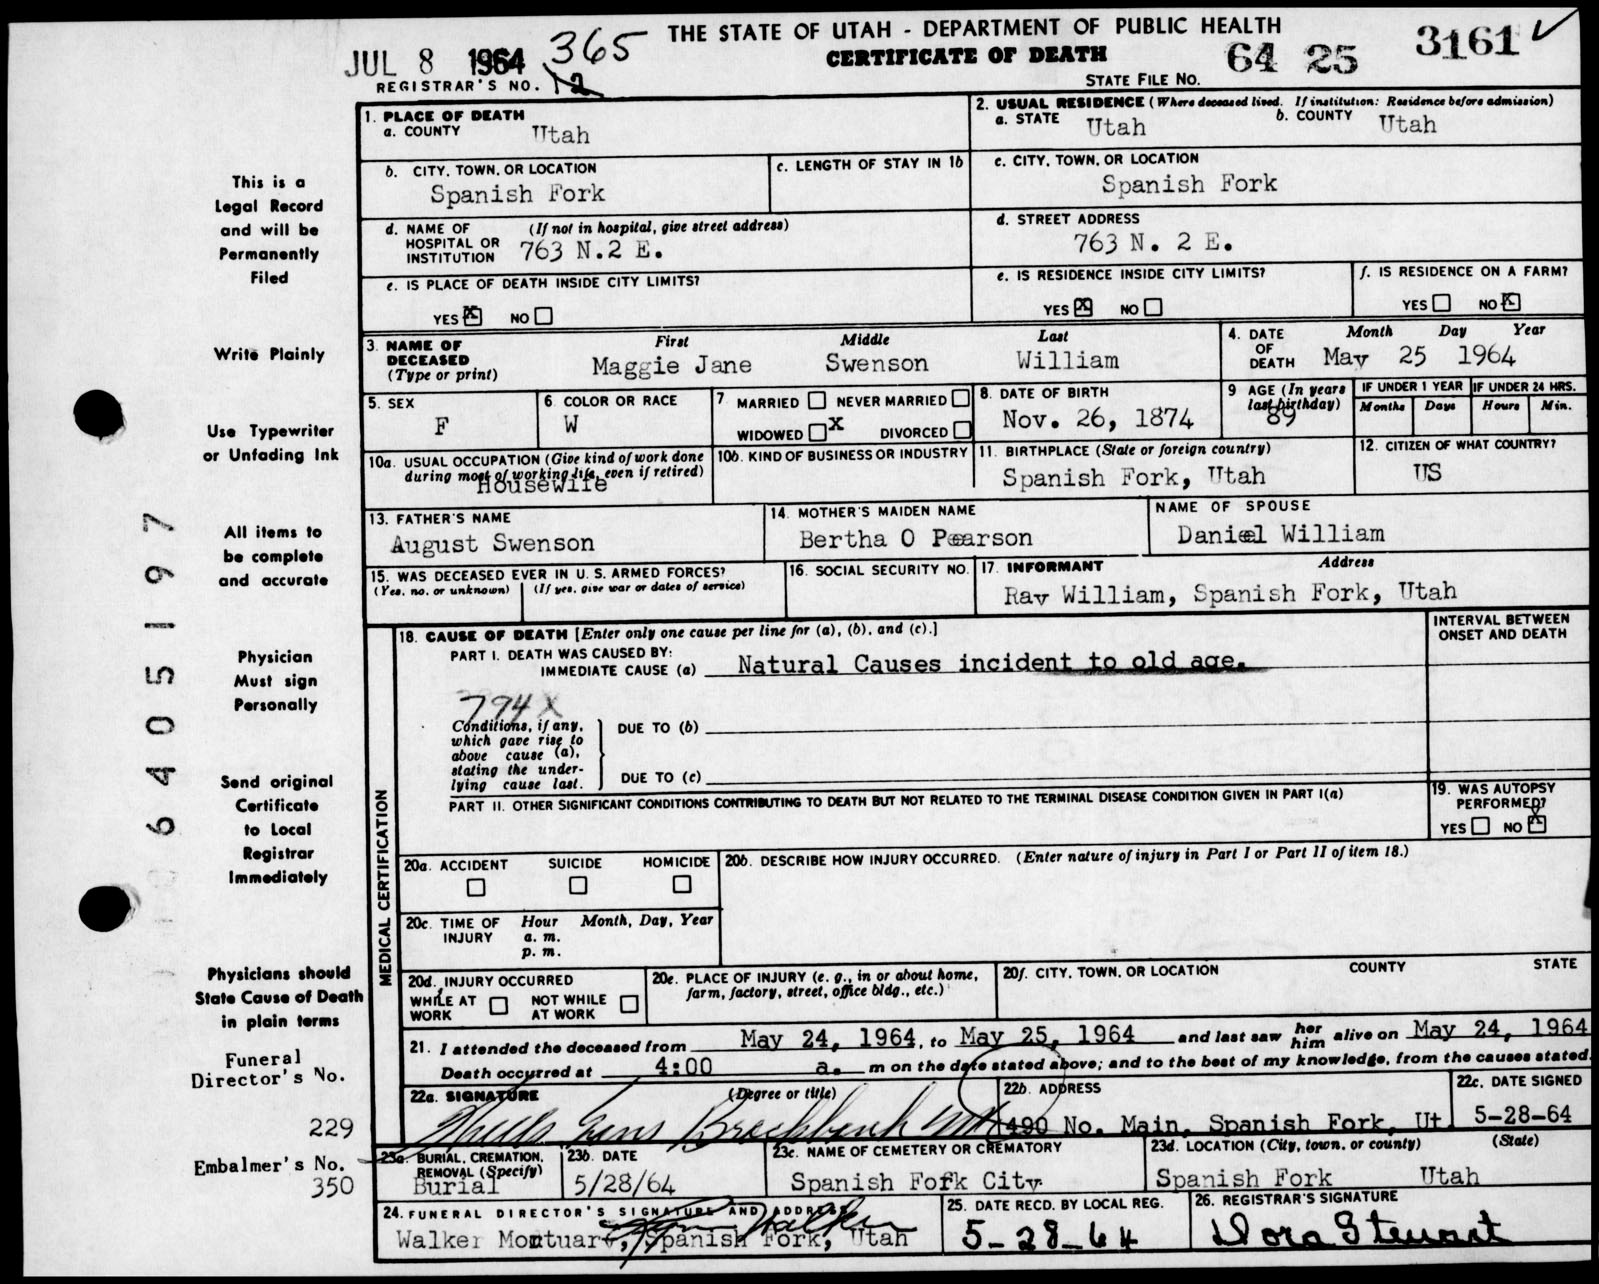 THE STATE OF UTAH - DEPARTMENT OF PUBLIC HEALTH
CERTIFICATE OF DEATH
JUL 8 1964 365 64 25 3161 ✓
REGISTRAR'S NO. 12 STATE FILE NO.
1. PLACE OF DEATH
a. COUNTY Utah
2. USUAL RESIDENCE (Where deceased lived. If institution: Residence before admission)
a. STATE Utah b. COUNTY Utah
b. CITY, TOWN, OR LOCATION
Spanish Fork
c. LENGTH OF STAY IN 1b
c. CITY, TOWN, OR LOCATION
Spanish Fork
d. NAME OF HOSPITAL OR INSTITUTION (If not in hospital, give street address)
763 N.2 E.
d. STREET ADDRESS
763 N. 2 E.
e. IS PLACE OF DEATH INSIDE CITY LIMITS?
YES X NO
e. IS RESIDENCE INSIDE CITY LIMITS?
YES X NO
f. IS RESIDENCE ON A FARM?
YES NO X
3. NAME OF DECEASED (Type or print)
First Middle Last
Maggie Jane Swenson William
4. DATE OF DEATH Month Day Year
May 25 1964
5. SEX
F
6. COLOR OR RACE
W
7. MARRIED NEVER MARRIED
WIDOWED X DIVORCED
8. DATE OF BIRTH
Nov. 26, 1874
9 AGE (In years last birthday)
89
IF UNDER 1 YEAR IF UNDER 24 HRS.
Months Days Hours Min.
10a. USUAL OCCUPATION (Give kind of work done
during most of working life, even if retired)
Housewife
10b. KIND OF BUSINESS OR INDUSTRY
11. BIRTHPLACE (State or foreign country)
Spanish Fork, Utah
12. CITIZEN OF WHAT COUNTRY?
US
13. FATHER'S NAME
August Swenson
14. MOTHER'S MAIDEN NAME
Bertha O Pearson
NAME OF SPOUSE
Daniel William
15. WAS DECEASED EVER IN U. S. ARMED FORCES?
(Yes, no, or unknown) (If yes, give war or dates of service)
16. SOCIAL SECURITY NO.
17. INFORMANT Address
Ray William, Spanish Fork, Utah
MEDICAL CERTIFICATION
18. CAUSE OF DEATH [Enter only one cause per line for (a), (b), and (c).]
INTERVAL BETWEEN ONSET AND DEATH
PART I. DEATH WAS CAUSED BY:
IMMEDIATE CAUSE (a) Natural Causes incident to old age.
794X
Conditions, if any,
which gave rise to
above cause (a),
stating the under-
lying cause last.
DUE TO (b)
DUE TO (c)
PART II. OTHER SIGNIFICANT CONDITIONS CONTRIBUTING TO DEATH BUT NOT RELATED TO THE TERMINAL DISEASE CONDITION GIVEN IN PART I(a)
19. WAS AUTOPSY PERFORMED?
YES NO X
20a. ACCIDENT SUICIDE HOMICIDE
20b. DESCRIBE HOW INJURY OCCURRED. (Enter nature of injury in Part I or Part II of item 18.)
20c. TIME OF INJURY Hour Month, Day, Year
a. m.
p. m.
20d. INJURY OCCURRED
WHILE AT WORK NOT WHILE AT WORK
20e. PLACE OF INJURY (e. g., in or about home,
farm, factory, street, office bldg., etc.)
20f. CITY, TOWN, OR LOCATION COUNTY STATE
21. I attended the deceased from May 24, 1964, to May 25, 1964 and last saw her him alive on May 24, 1964
Death occurred at 4:00 a. m on the date stated above; and to the best of my knowledge, from the causes stated.
22a. SIGNATURE (Degree or title)
Brockbank
22b. ADDRESS
490 No. Main, Spanish Fork, Ut
22c. DATE SIGNED
5-28-64
23a. BURIAL, CREMATION, REMOVAL (Specify)
Burial
23b. DATE
5/28/64
23c. NAME OF CEMETERY OR CREMATORY
Spanish Fork City
23d. LOCATION (City, town, or county) (State)
Spanish Fork Utah
24. FUNERAL DIRECTOR'S SIGNATURE AND ADDRESS
Walker
Walker Mortuary, Spanish Fork, Utah
25. DATE RECD. BY LOCAL REG.
5-28-64
26. REGISTRAR'S SIGNATURE
Dora Stewart
This is a
Legal Record
and will be
Permanently
Filed
Write Plainly
Use Typewriter
or Unfading Ink
All items to
be complete
and accurate
Physician
Must sign
Personally
Send original
Certificate
to Local
Registrar
Immediately
Physicians should
State Cause of Death
in plain terms
Funeral
Director's No.
229
Embalmer's No.
350
6405197